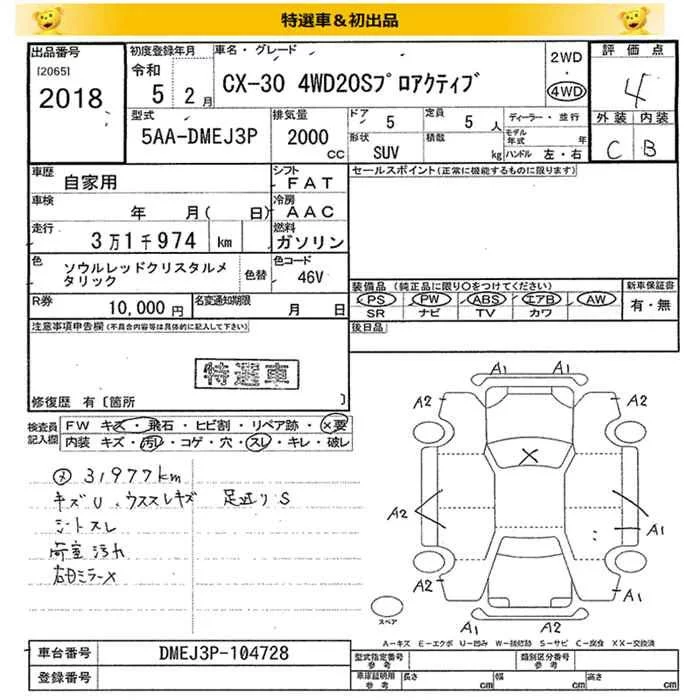 特選車＆初出品
出品番号
[2065]
2018
初度登録年月
令和
5 2月
車名・グレード
CX-30 4WD20Sプロアクティブ
2WD
・
4WD
評価点
4
外装 内装
C B
型式
5AA-DMEJ3P
排気量
2000
cc
ドア
5
定員
5 人
形状
SUV
積載
kg
ディーラー・並行
モデル年式 年
ハンドル 左・右
車歴
自家用
シフト
FAT
セールスポイント(正常に機能するものに限ります)
車検
年 月( 日)
冷房
AAC
走行
3万1千974 km
燃料
ガソリン
色
ソウルレッドクリスタルメタリック
色替
色コード
46V
装備品 (純正品に限り○をつけてください)
PS PW ABS エアB AW
SR ナビ TV カワ
新車保証書
有・無
R券
10,000円
名変通知期限
月 日
後日品
注意事項申告欄(不具合内容等は具体的に記入して下さい)
特選車
修復歴 有〔箇所 〕
検査員記入欄
FW キズ・飛石・ヒビ割・リペア跡・×要
内装 キズ・汚れ・コゲ・穴・スレ・キレ・破レ
31977km
キズU、ウススレキズ 足廻りS
シートスレ
荷室汚れ
右ドミラーX
A1 A1
A2 A2
X
A2 A1
A1
A2 A2
A1 A1
スペア
A-キズ E-エクボ U-凹み W-補修跡 S-サビ C-腐食 XX-交換済
車台番号
DMEJ3P-104728
登録番号
型式指定番号
参考
類別区分番号
参考
車庫証明用
参考
長さ cm
幅 cm
高さ cm